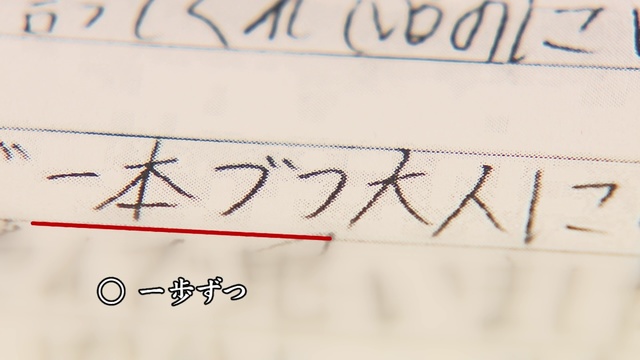 ってくれ
一本づつ大人に
○ 一歩ずつ